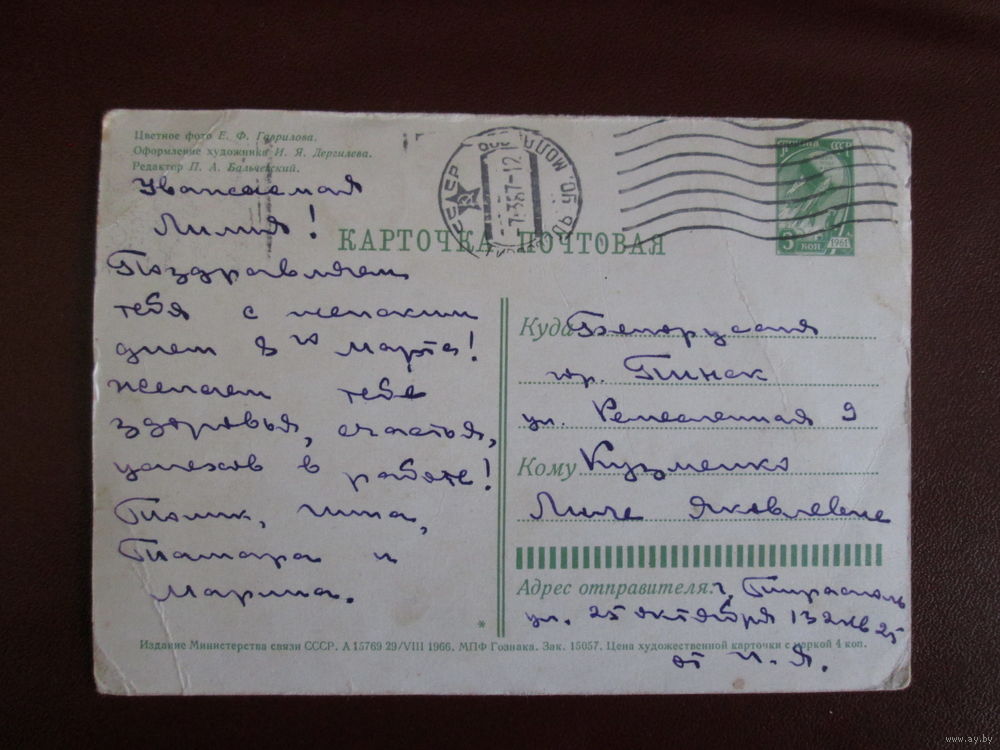 Цветное фото Е. Ф. Гаврилова.
Оформление художника И. Я. Дергилева.
Редактор П. А. Бальчевский.
Уважаемая
Лилия!
Поздравляем
тебя с женским
днем 8го марта!
желаем тебе
здоровья, счастья,
успехов в работе!
Толик, Нина,
Тамара и
Марина.
КАРТОЧКА ПОЧТОВАЯ
СССР
7-367-12
почта СССР
3 коп.
1961
Куда Белоруссия
гор. Пинск
ул. Ремесленная 9
Кому Кузменко
Лиле Яковлевне
Адрес отправителя: г. Тирасполь
ул. 25 октября 13 кв 25
от И. Я.
*
Издание Министерства связи СССР. А 15769 29/VIII 1966. МПФ Гознака. Зак. 15057. Цена художественной карточки с маркой 4 коп.
www.ay.by